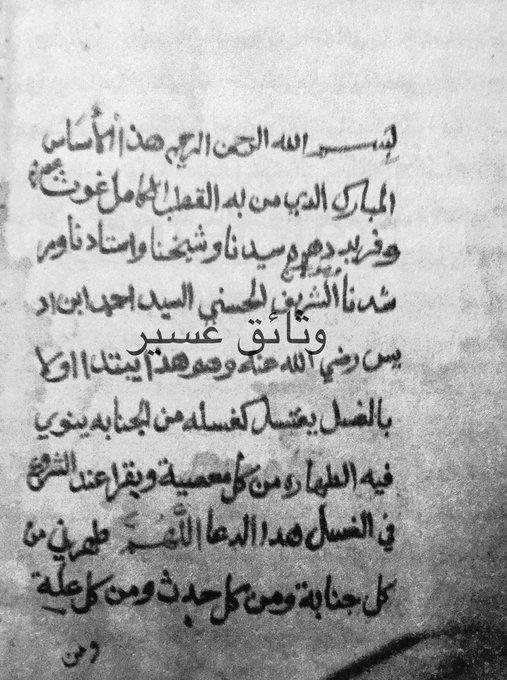 بسم الله الرحمن الرحيم هذا الأساس
المبارك الذي من به القطب الكامل غوث عصره
وفريد دهره سيدنا وشيخنا واستادنا ومر
شدنا الشريف الحسني السيد احمد ابن اد
وثائق عسير
يس رضي الله عنه وهو هذا يبتدا اولا
بالغسل يغتسل كغسله من الجنابه ينوي
فيه الطهاره من كل معصية ويقرا عند الشروع
في الغسل هدا الدعا اللهم طهرني من
كل جنابة ومن كل حدث ومن كل علة
ومن